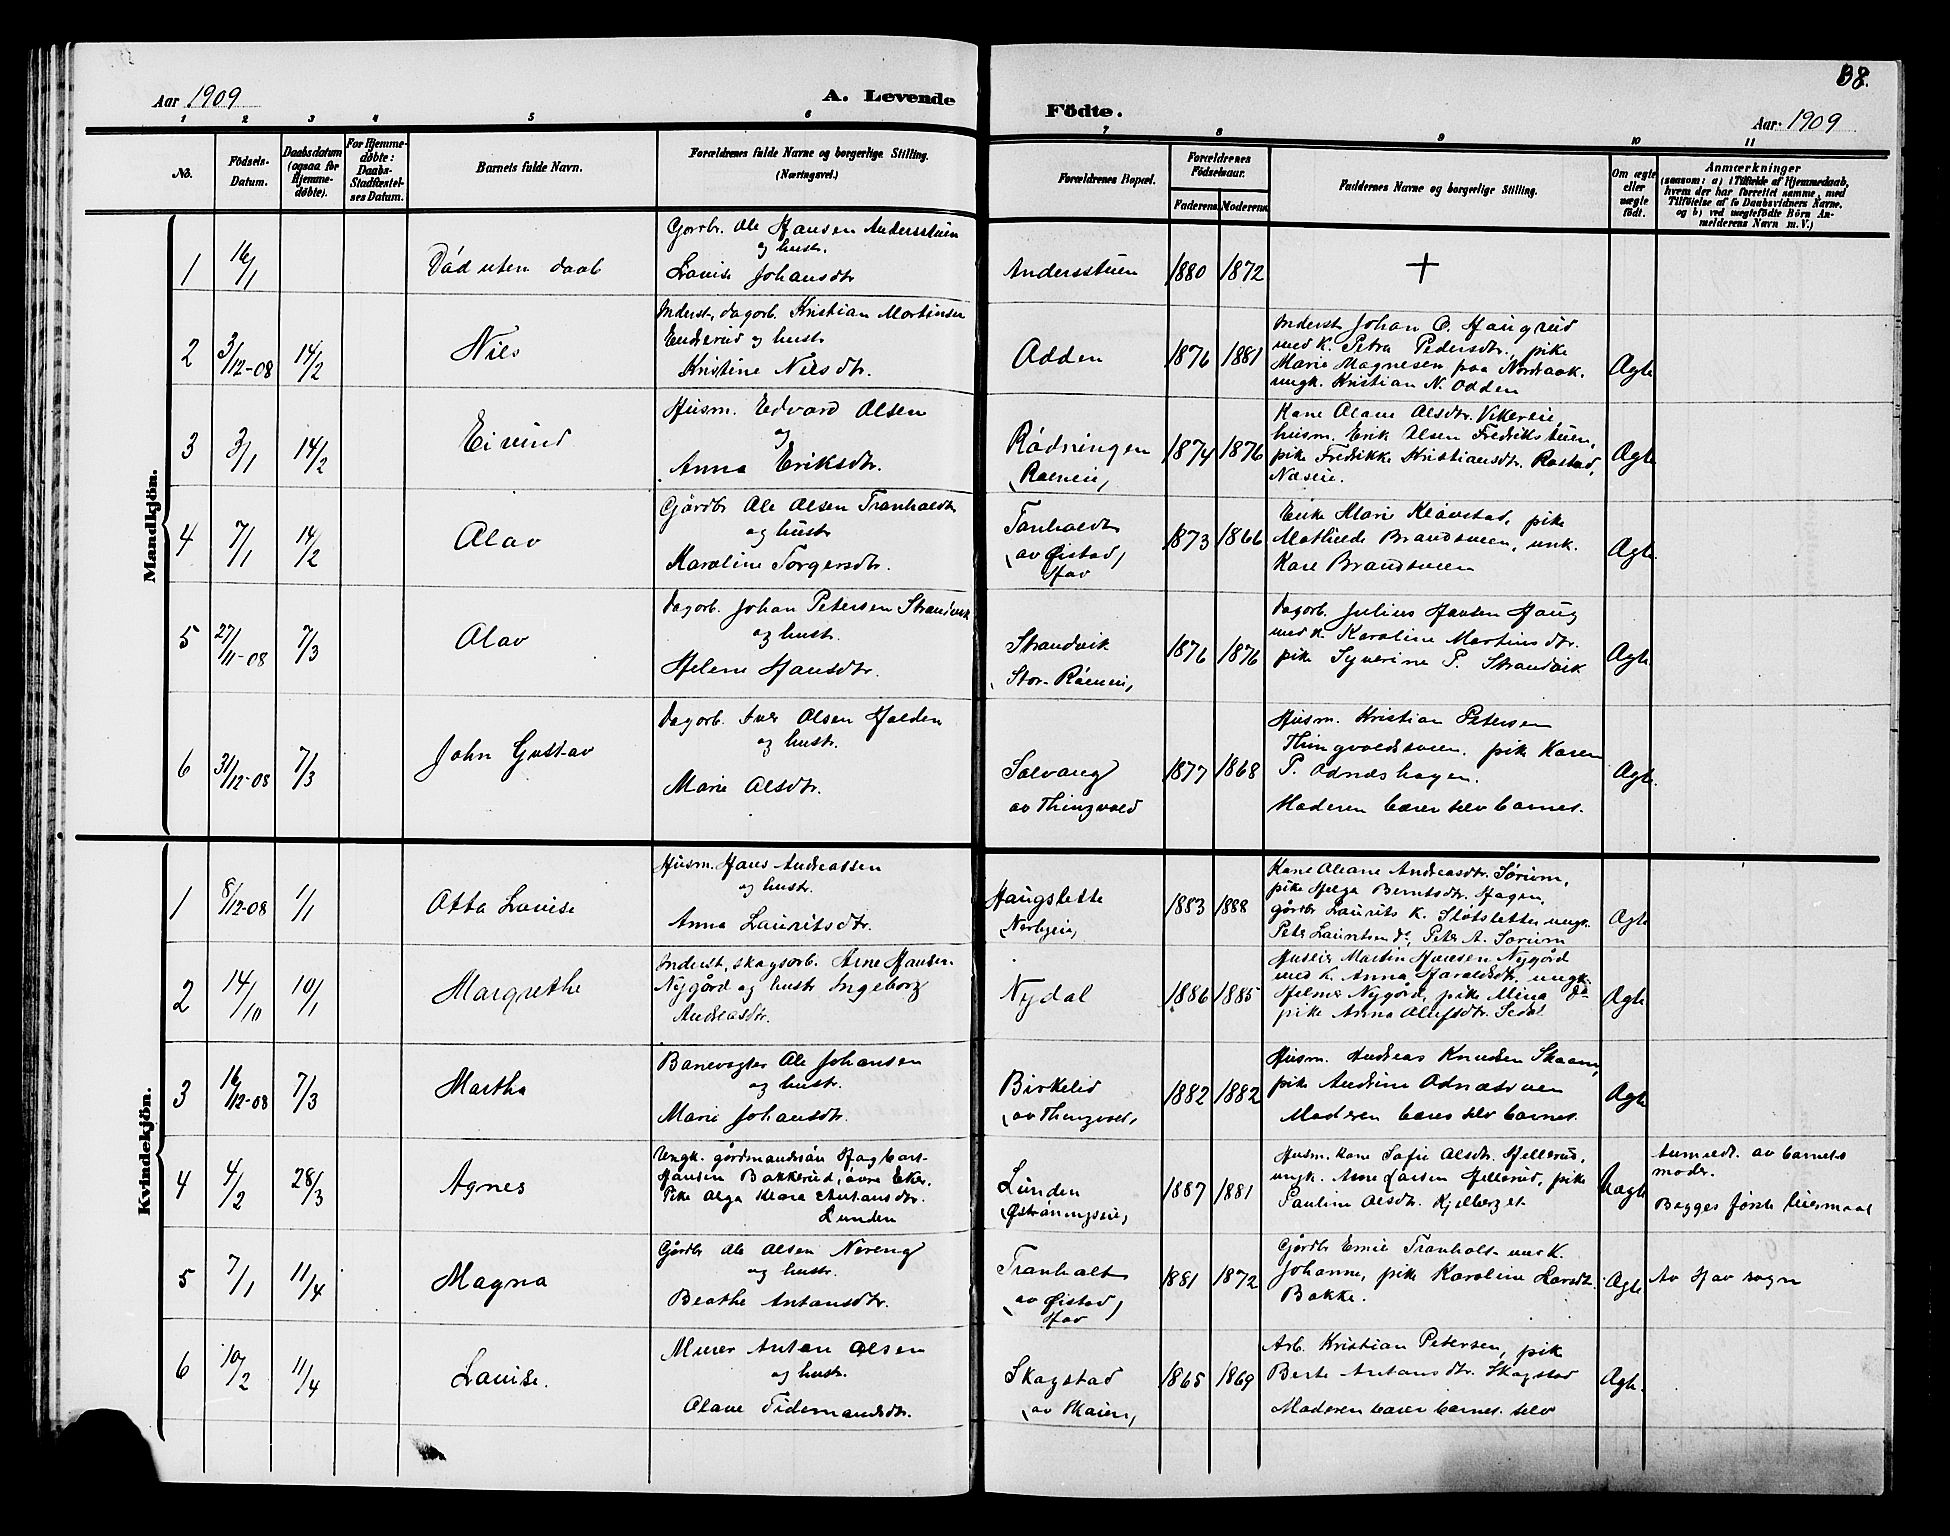 38.
Aar 1909
A. Levende
Födte.
Aar 1909
1 2 3 4 5 6 7 8 9 10 11
No.
Födsels-
Datum.
Daabsdatum
(ogsaa for
Hjemme-
döbte).
For Hjemme-
döbte:
Daabs-
Stadfæstel-
ses Datum.
Barnets fulde Navn.
Forældrenes fulde Navne og borgerlige Stilling.
(Næringsvei.)
Forældrenes Bopæl.
Forældrenes
Födselsaar.
Faderens. Moderens.
Faddernes Navne og borgerlige Stilling.
Om ægte
eller
uægte
födt.
Anmærkninger
(saasom: a) i Tilfælde af Hjemmedaab,
hvem der har forrettet samme, med
Tilföielse af to Daabsvidners Navne.
og b) ved uægtefödte Börn An-
melderens Navn m. V.)
Mandkjön.
1
16/1
Død uten daab
Ole Hansen Andersstuen
og hustr.
Louise Johansdtr
Andersstuen
1880 1872
+
2
3/12-08
14/2
Nils
Inderst, dagarb. Kristian Martinsen
Enderud og hustr
Kristine Nilsdtr.
Odden
1876 1881
Inderst Johan O. Haugrud
med k. Petra Pedersdtr., pike
Marie Magnesen paa Nordaak.
ungk. Kristian N. Odden
Ægte
3
3/1
14/2
Eivind
Husm. Edvard Olsen
og
Anna Eriksdtr.
Rødningen
1874 1876
husm. Erik Olsen Fredrikstuen,
pike Fredrikke Kristiansdtr. Rostad,
Ægte
4
7/1
14/2
Olav
Gårdbr Ole Olsen Tranholdt
og hustr
Karoline Torgersdtr.
Tanholdt
(av Øistad)
Hov
1873 1866
Mathilde Brandsveen, unk.
Kare Brandsveen
Ægte
5
27/11-08
7/3
Olav
Dagarb. Johan Petersen Strandvik
og hustr.
Helene Hansdtr.
Strandvik
1876 1876
Dagarb. Julius Hansen Haug
med k. Karoline Martinsdtr.
pike Syverine P. Strandvik
Ægte
6
31/12-08
7/3
John Gustav
Dagarb. Iver Olsen Holden
og hustr.
Marie Olsdtr.
Solvang
av Thingvold
1877 1868
Husm. Kristian Petersen
Thingvoldsveen. pike Karen
P. Odnæshagen.
Moderen bærer selv barnet.
Ægte
Kvindekjön.
1
8/12-08
1/1
Otta Louise
Husm. Hans Andreassen
og hustr.
Anna Lauritsdtr.
Haugslette
1883 1888
Kone Oleane Andreasdtr. Sørum,
pike Helga Berntsdtr. Hagen,
gårdbr Laurits K. Slotsletten, ungk.
Peter Lauritsen do, Peter A. Sørum
Ægte
2
14/10
10/1
Margrethe
Inderst, skogsarb. Arne Hansen
Nygård og hustr Ingeborg
Andreasdtr.
Nydal
1886 1885
Huseier Martin Hansen Nygård
med k. Anna Haraldsdtr, ungk.
Helmer Nygård, pike Mina do
pike Anna Olufsdtr. Sedal
Ægte
3
16/12-08
7/3
Martha
Banevogter Ole Johansen
og hustr.
Marie Johansdtr.
Birkelid
(av Thingvold)
1882 1882
Husm. Andreas Knudsen Skaam,
pike Andrine Odnæsveen
Moderen bæres selv barnet.
Ægte
4
4/2
28/3
Agnes
Ungk. gårdmandssøn Hagbart
Hansen Bakkerud, øvre Eker.
Pike Olga Klara Antonsdtr.
Lunden
Lunden
1887 1881
Husm. kone Sofie Olsdtr. Hellerud,
ungk. Arne Larsen Hellerud, pike
Pauline Olsdtr. Kjelberget
Uægte
Anmeldt. av barnets
moder.
Begges første leiermaal
5
7/1
11/4
Magna
Gårdbr Ole Olsen Nereng
og hustr.
Beathe Antonsdtr.
Tranholt
(av Øistad)
Hov
1881 1872
Gårdbr Emil Tranholt med k.
Johanne, pike Karoline Larsdtr.
Bakke.
Ægte
Av Hov sogn
6
10/2
11/4
Louise.
Murer Anton Olsen
og hustr.
Olave Tidemandsdtr.
Skogstad
1865 1869
Arb. Kristian Petersen, pike
Berte Antonsdtr. Skogstad
Moderen bærer barnet selv
Ægte.